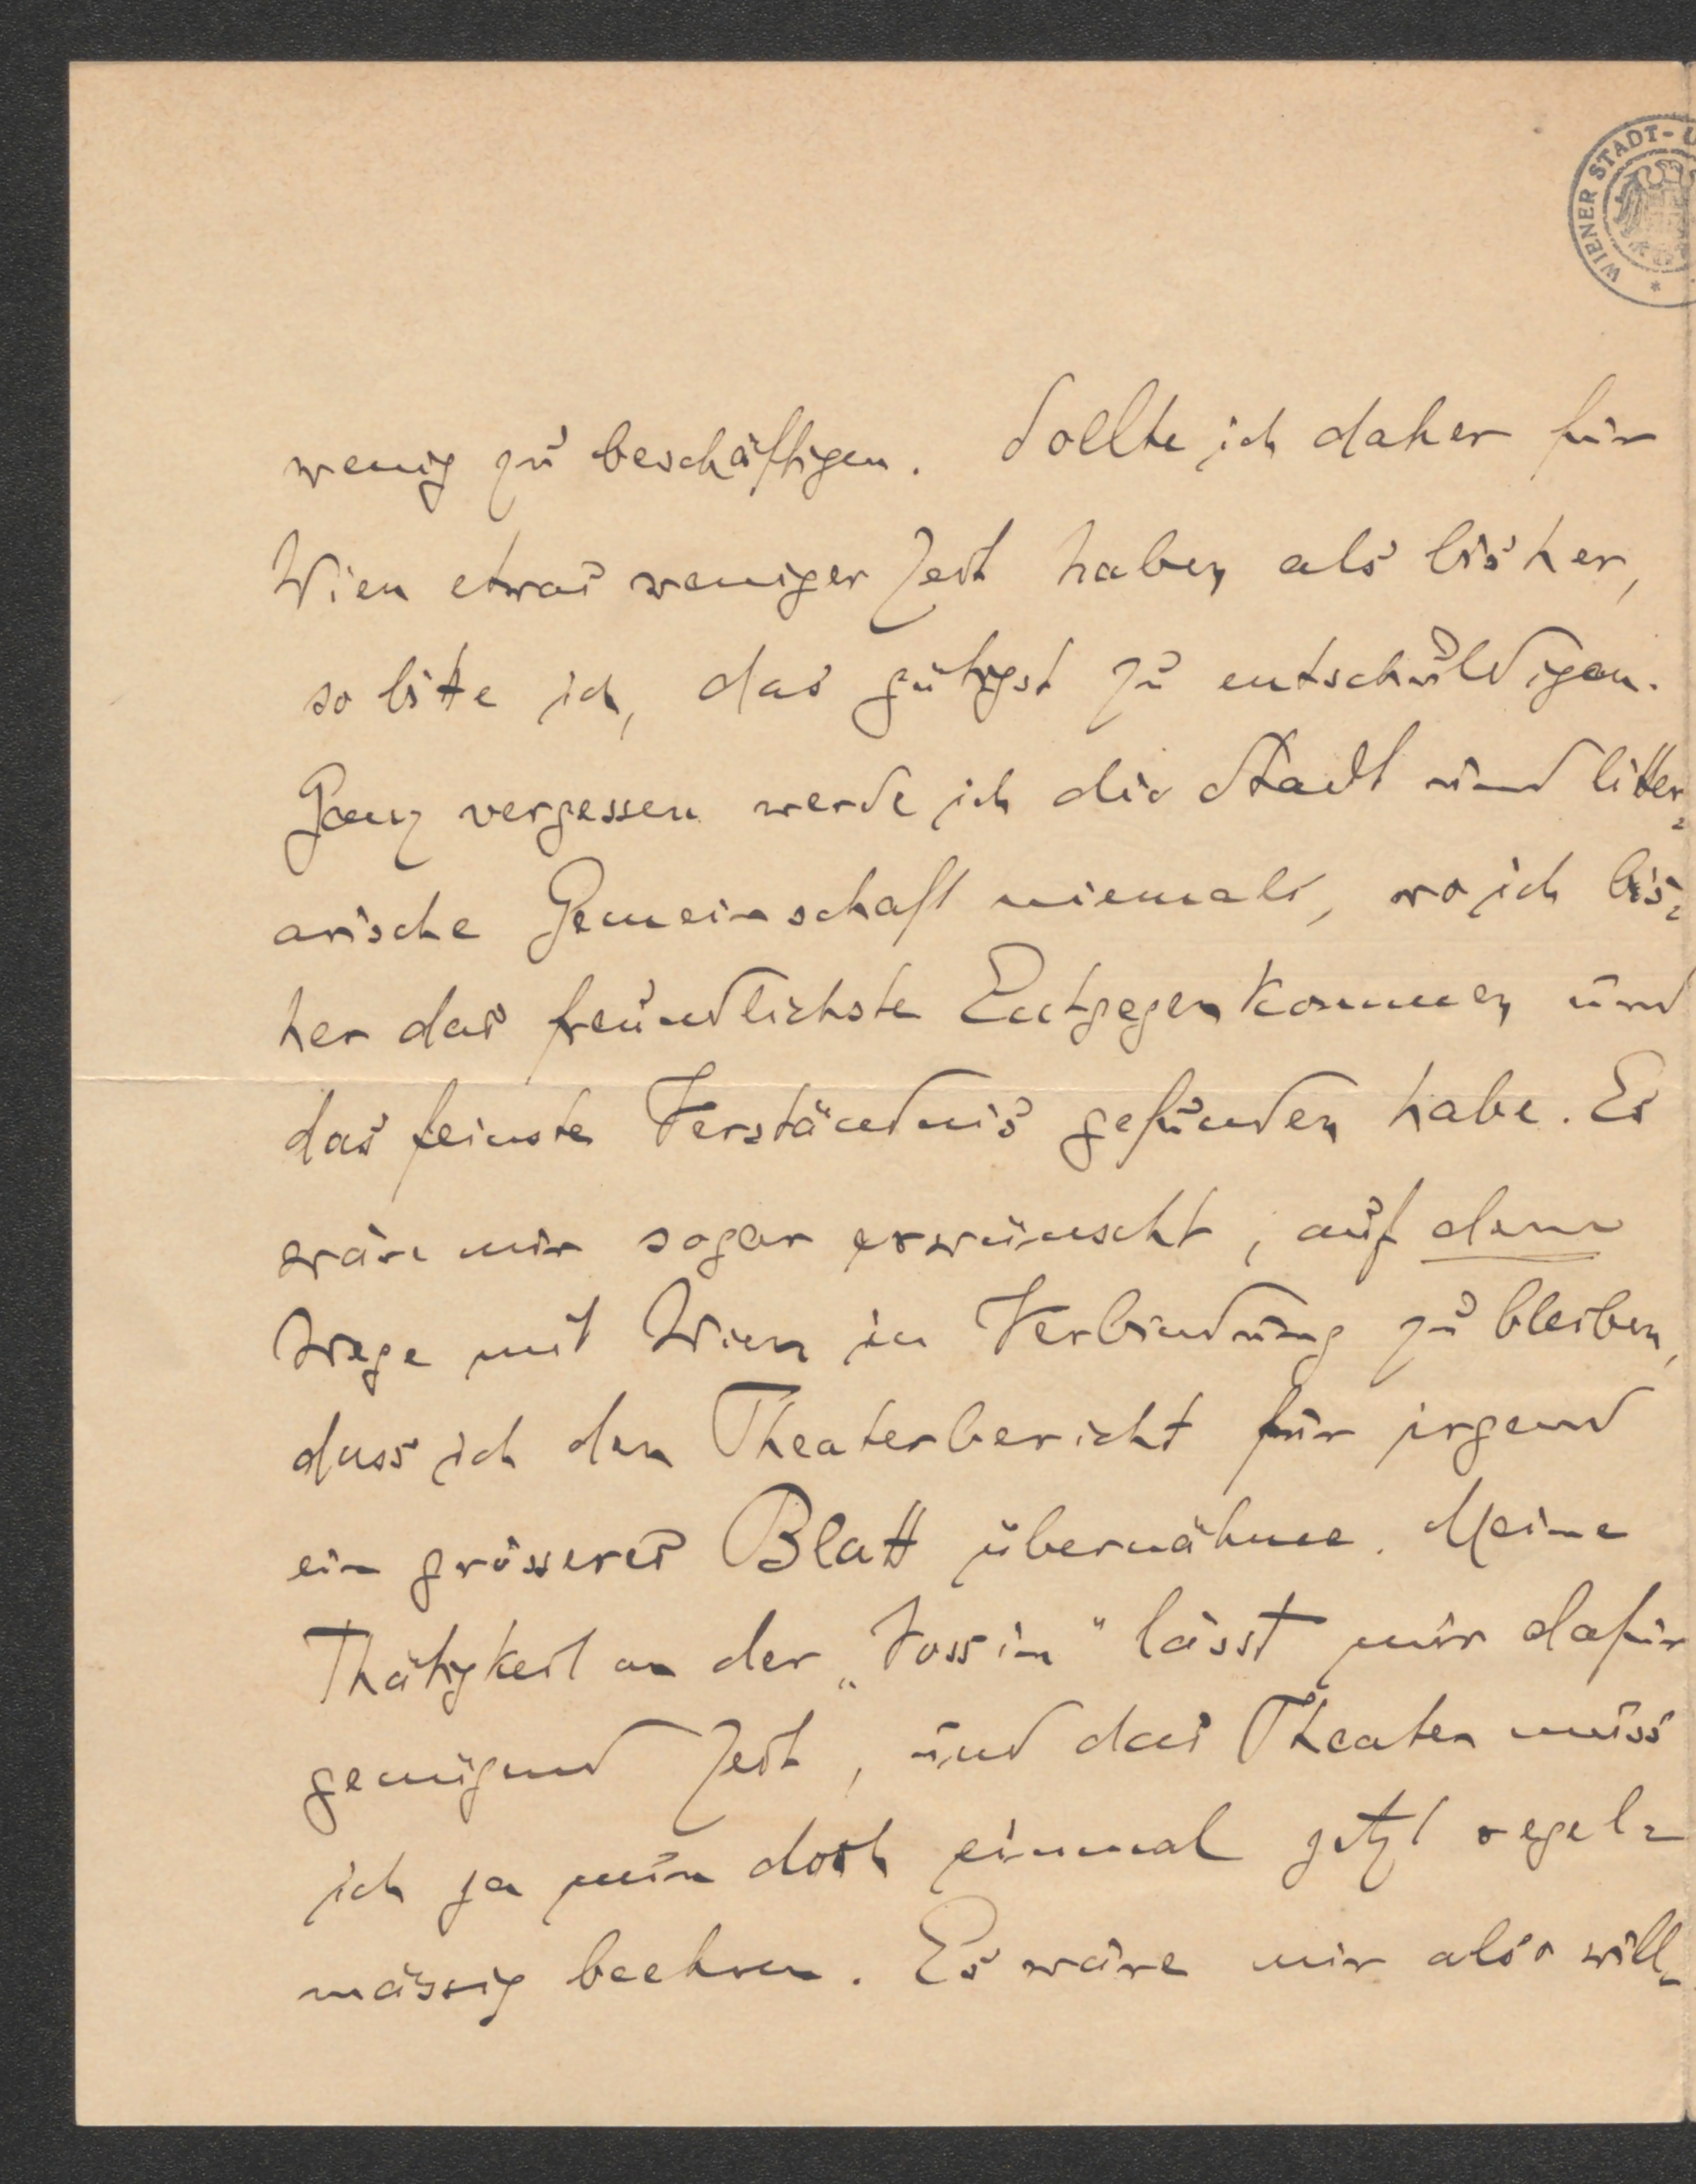 WIENER STADT-U
wenig zu beschäftigen. Sollte ich daher für
Wien etwas weniger Zeit haben als bisher,
so bitte ich, das gütigst zu entschuldigen.
Ganz vergessen werde ich die Stadt und litter-
arische Gemeinschaft niemals, wo ich bis-
her das freundlichste Entgegenkommen und
das feinste Verständnis gefunden habe. Es
wäre mir sogar erwünscht, auf dem
Wege mit Wien in Verbindung zu bleiben,
dass ich den Theaterbericht für irgend
ein grösseres Blatt übernähme. Meine
Thätigkeit an der „Vossin“ lässt mir dafür
genügend Zeit, und das Theater muss
ich ja nun doch einmal jetzt regel-
mässig beehren. Es wäre mir also will-